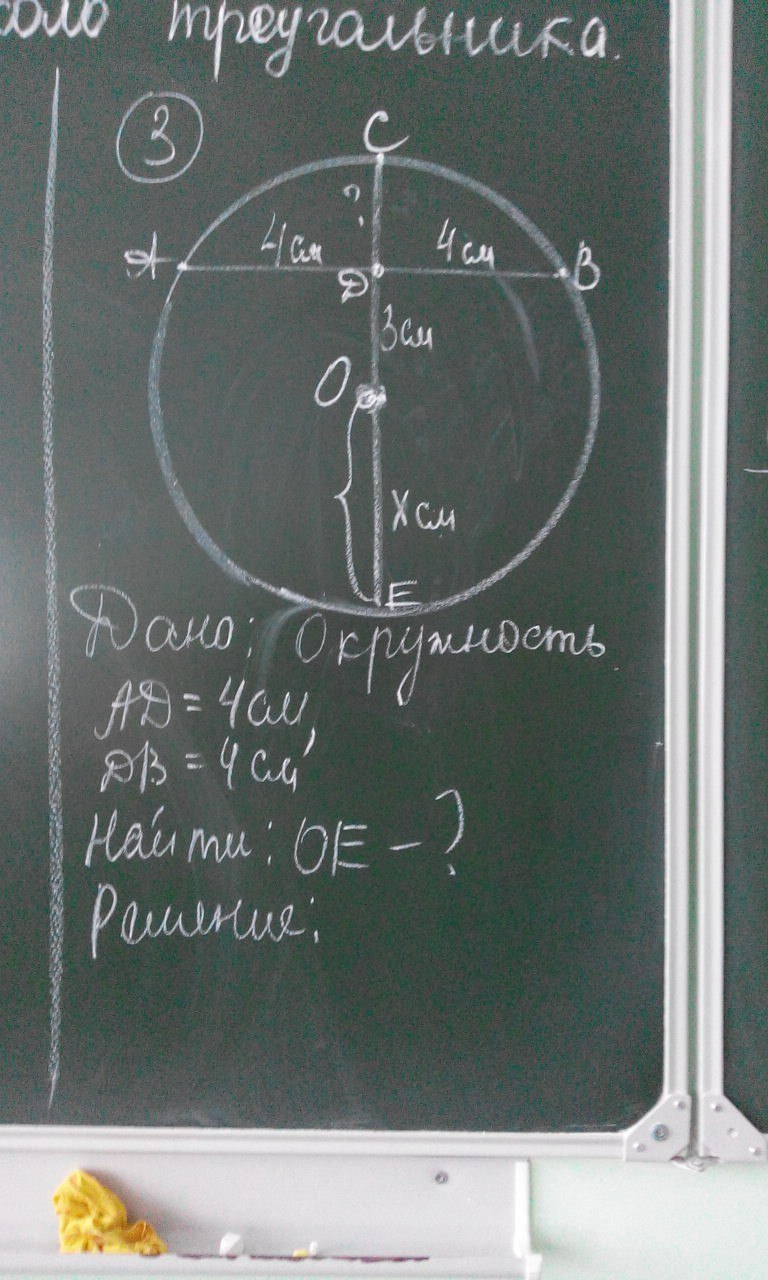 треугольника.
3
C
?
A 4см 4см B
D
3см
O
x см
E
Дано: Окружность
AD = 4 см,
DB = 4 см
Найти: OE - ?
Решения: